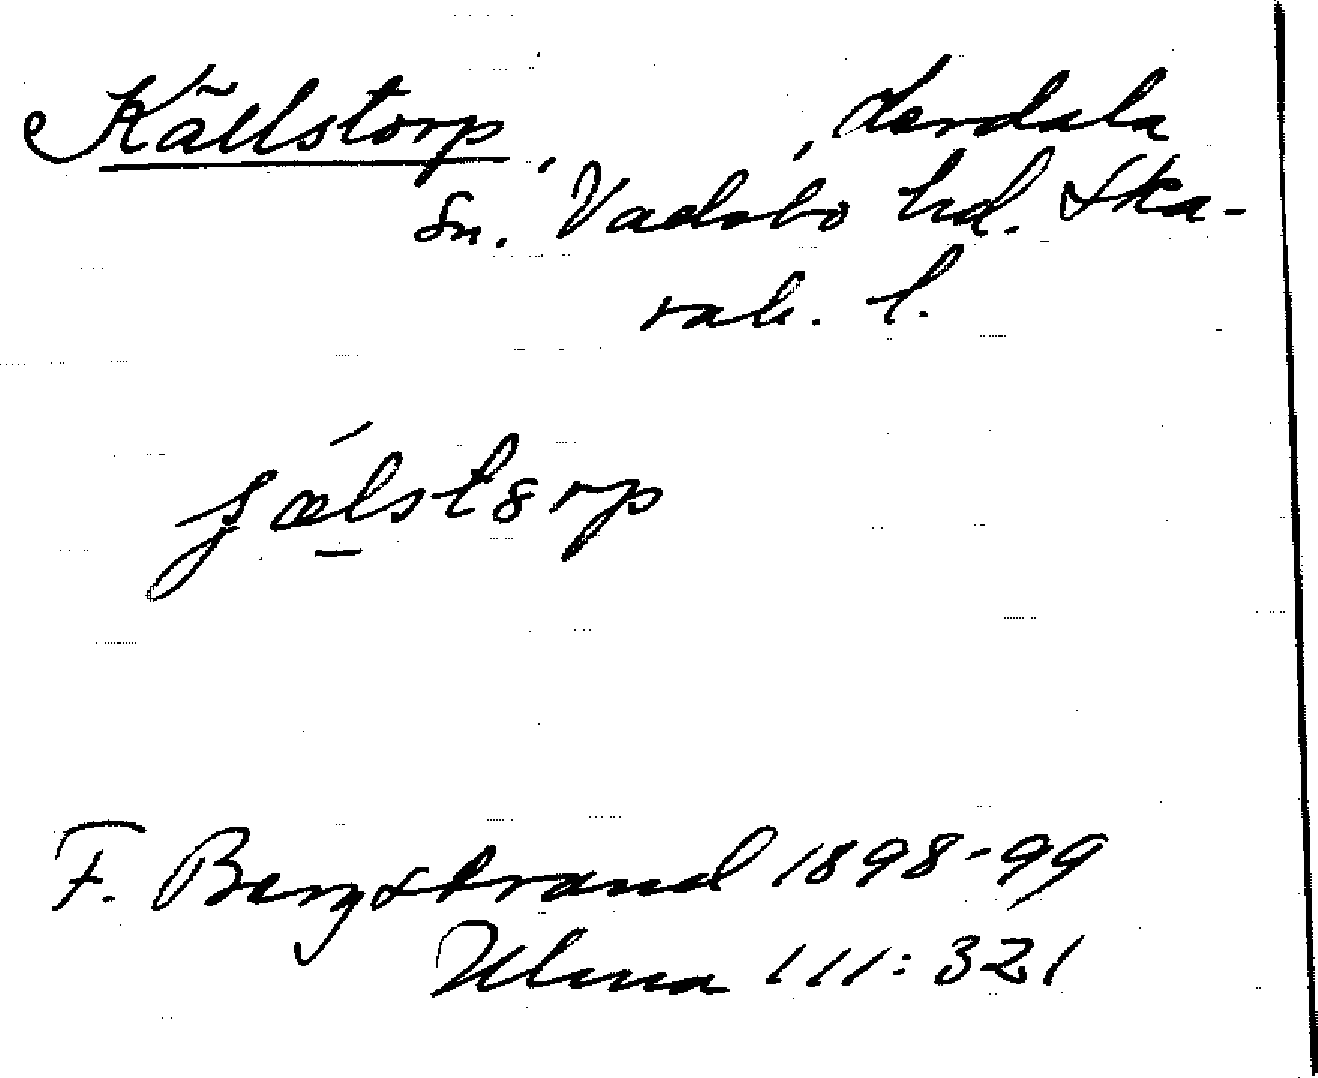 Källstorp, , Lerdala
Sn. Vadsbo hd. Ska-
rab. l.
Bergstrand 1898-99
111:321